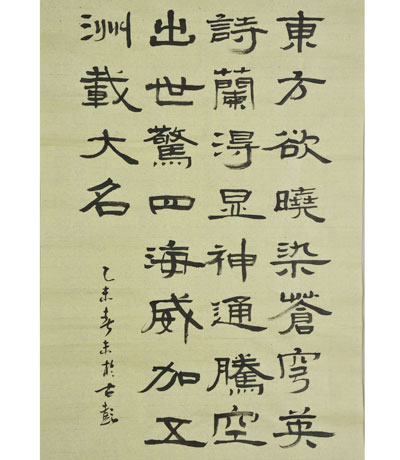 東方欲曉染蒼穹英
詩蘭淂显神通騰空
出世驚四海威加五
洲載大名
乙未春末於古彭